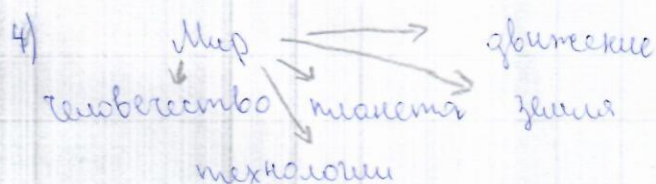 4) Мир движение
человечество планета земля
технологии